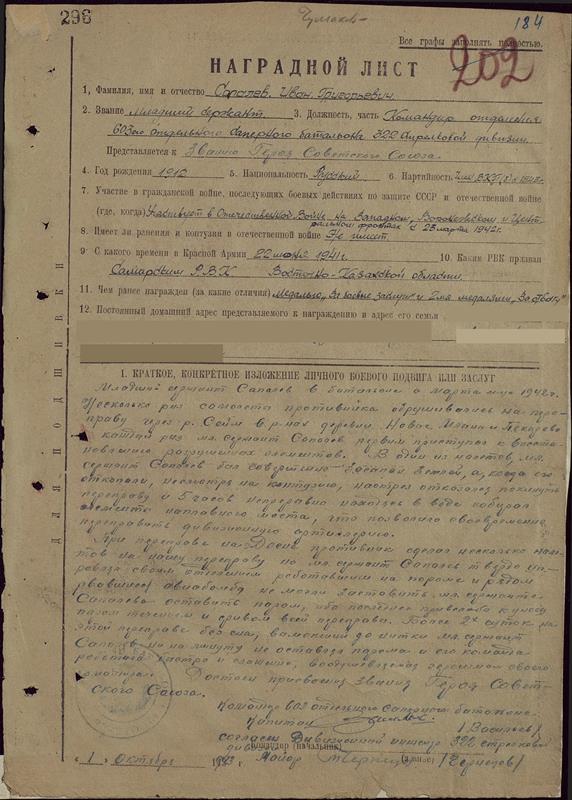 298
Чумаков
184
Все графы заполнять полностью.
202
НАГРАДНОЙ ЛИСТ
1. Фамилия, имя и отчество Сапалев Иван Григорьевич.
2. Звание Младший сержант. 3. Должность, часть Командир отделения
603го отдельного саперного батальона 322 стрелковой дивизии.
Представляется к Званию Героя Советского Союза.
4. Год рождения 1912 5. Национальность Русский 6. Партийность
7. Участие в гражданской войне, последующих боевых действиях по защите СССР и отечественной войне
(где, когда) Участвует в Отечественной Войне на Западном, Воронежском и Цент
ральном фронтах с 25 марта 1942г.
8. Имеет ли ранения и контузии в отечественной войне Не имеет.
9. С какого времени в Красной Армии 22 июня 1941г. 10. Каким РВК призван
Самарским РВК Восточно-Казахской области.
11. Чем ранее награжден (за какие отличия) Медалью "За боевые заслуги" и 2мя медалями "За отвагу"
12. Постоянный домашний адрес представляемого к награждению и адрес его семьи
ПОДШИВКИ
I. КРАТКОЕ, КОНКРЕТНОЕ ИЗЛОЖЕНИЕ ЛИЧНОГО БОЕВОГО ПОДВИГА ИЛИ ЗАСЛУГ
Младший сержант Сапалев в батальоне с марта м-ца 1942г.
Несколько раз самолеты противника обрушивались на пере-
праву через р. Сейм в р-нах деревни Новые Млины и
каждый раз мл. сержант Сапалев первым приступал к восста-
новлению разрушенных элементов. В один из налетов, мл.
сержант Сапалев был совершенно засыпан землей, а, когда его
откопали, несмотря на контузию, наотрез отказался покинуть
переправу и 5 часов непрерывно находясь в воде собирал
элементы наплавного моста, что позволило своевременно
переправить дивизионную артиллерию.
При переправе на Десне противник сделал несколько нале-
тов на нашу переправу но мл. сержант Сапалев твердо уп-
равлял своим отделением работавшим на пароме и рядом
рвавшиеся авиабомбы не могли заставить мл. сержанта
Сапалева оставить паром, ибо последнее привело бы к уносу
паром течением и срывом всей переправы. Более 2х суток на
этой переправе без сна, вымокший до нитки мл. сержант
Сапалев ни на минуту не оставлял парома и его команда
работала быстро и слаженно, воодушевляемая героизмом своего
командира. Достоин присвоения звания Героя Совет-
ского Союза.
Командир 603 отдельного саперного батальона
Капитан /Васильев/
согласен Дивизионный инженер 322 стрелковой
дивизии
Командир (начальник)
(подпись)
"1" Октябрь 1943 Майор